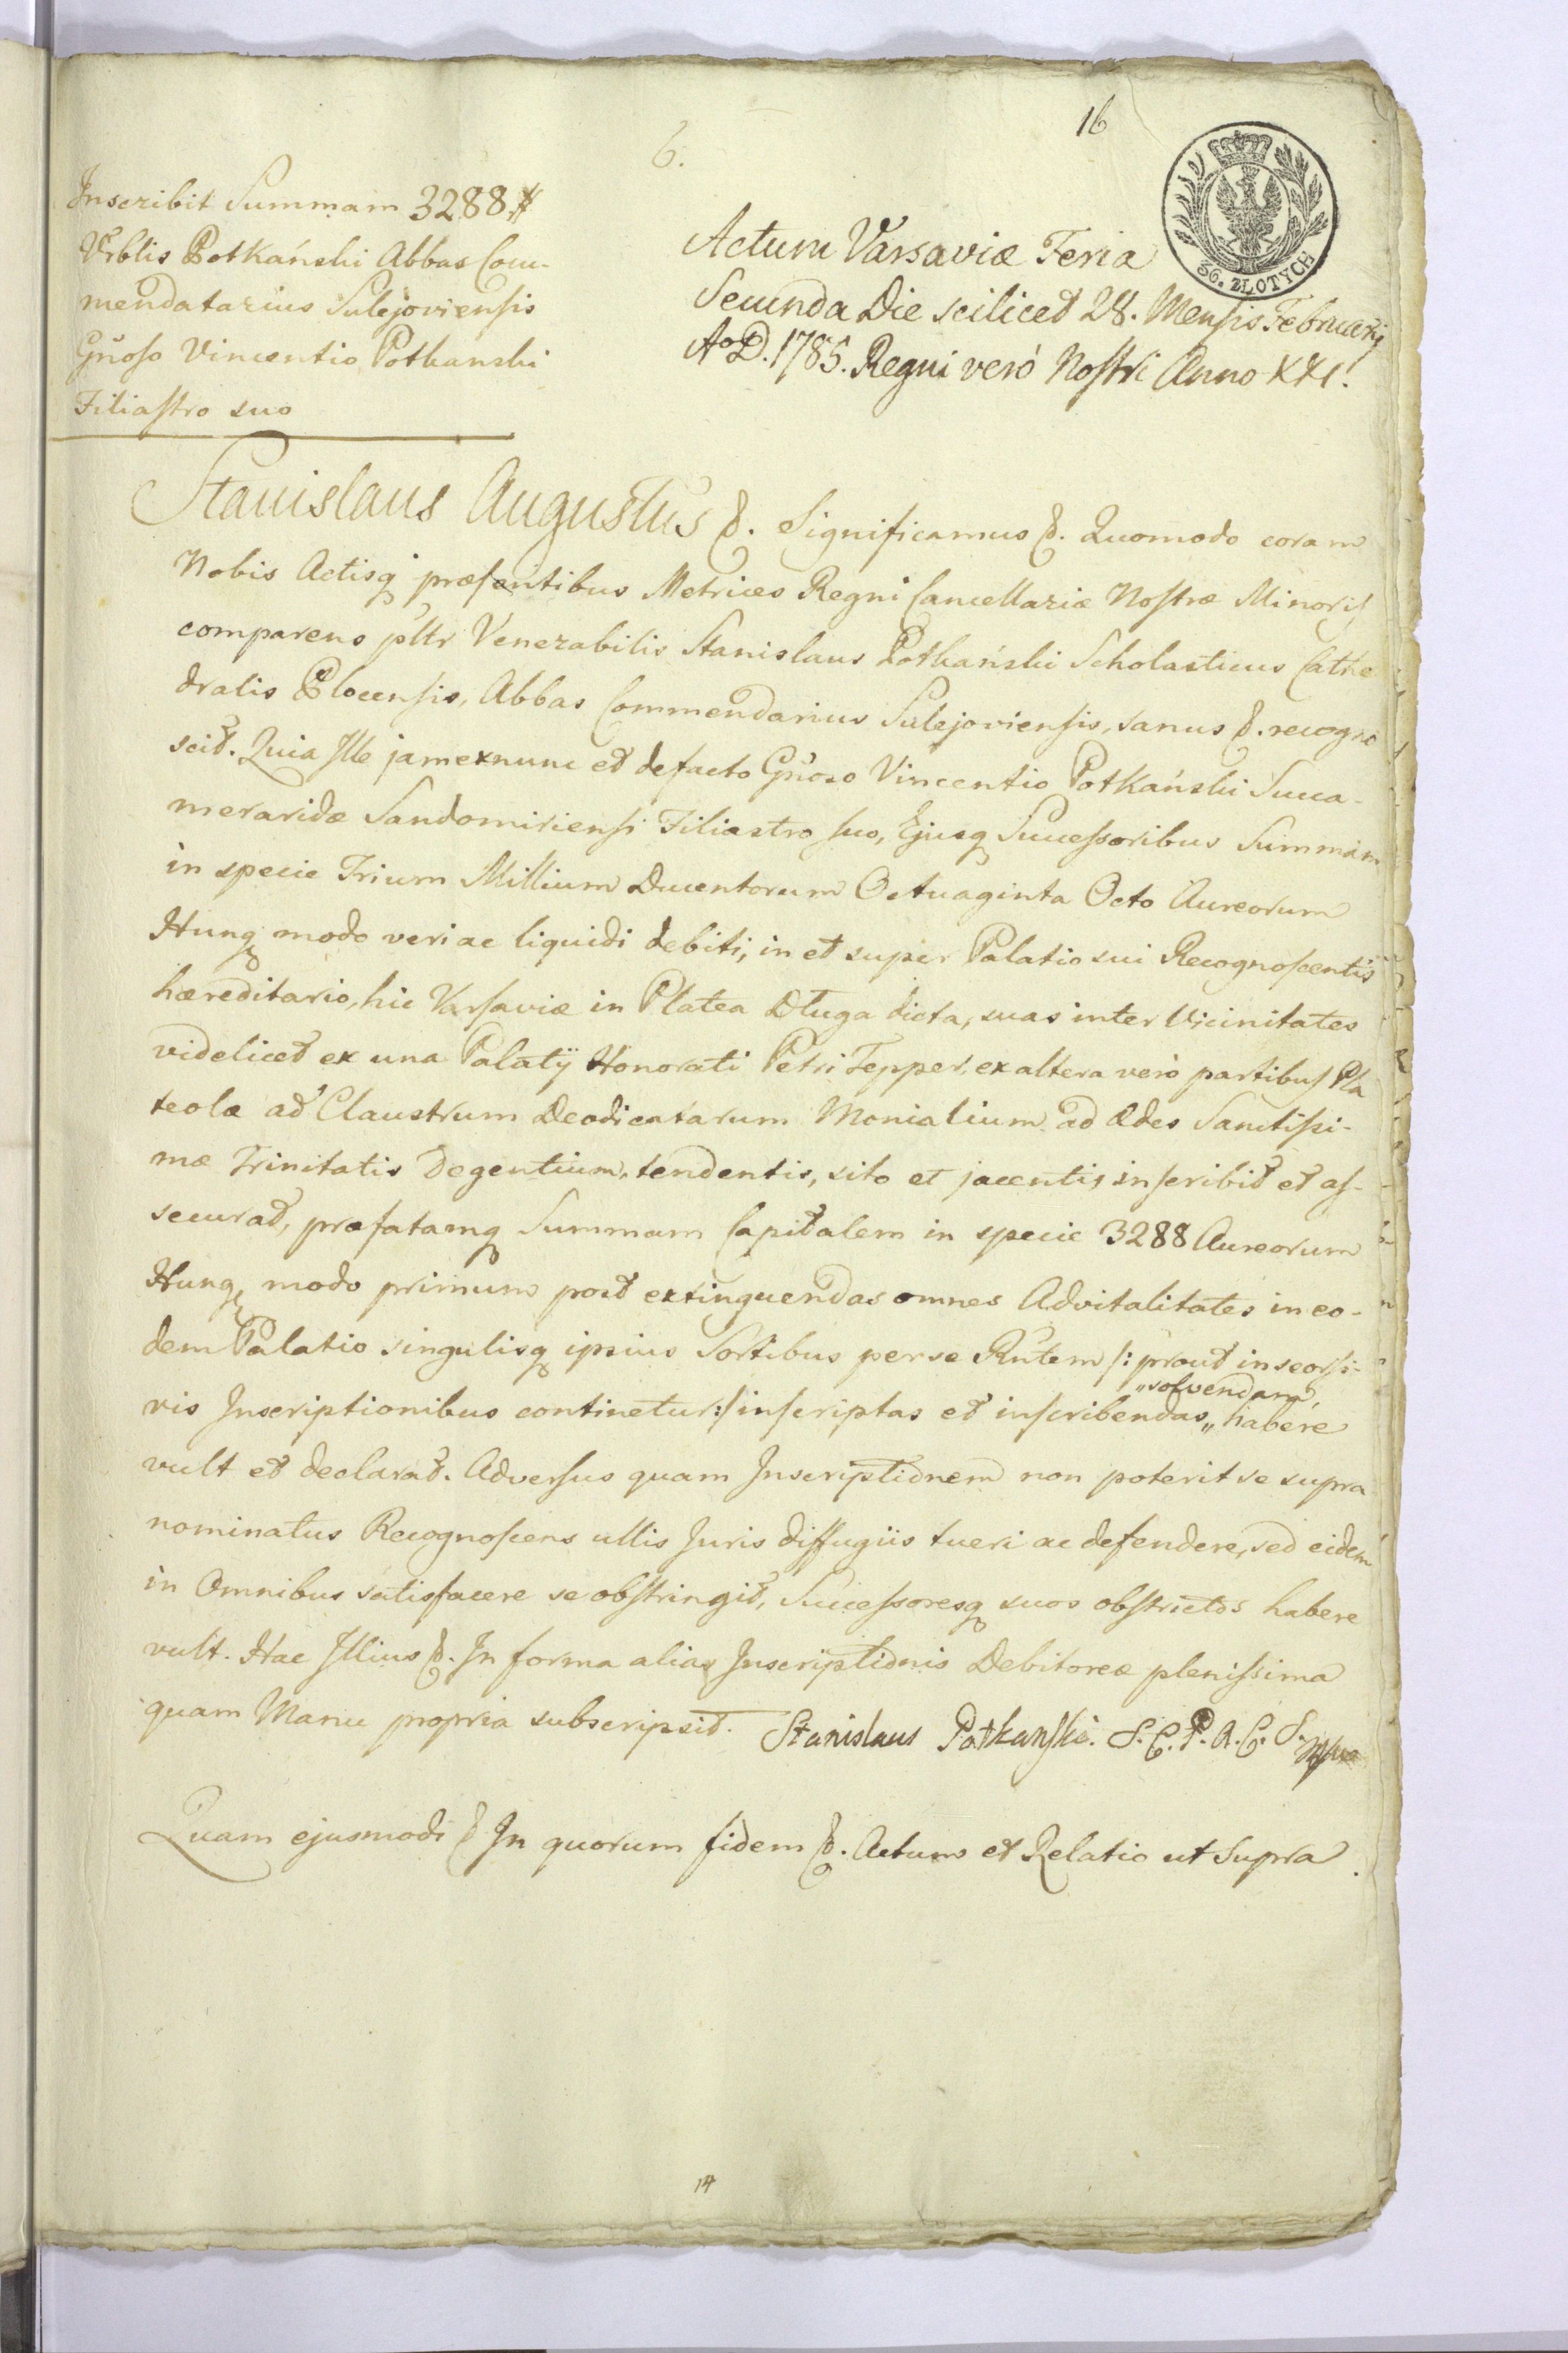 16
6.
36. ZŁOTYCH
Inscribit Summam 3288 #
Vrblis Potkański Abbas Com-
mendatarius Sulejoviensis
Gnoso Vincentio Potkanski
Filiastro suo
Actum Varsaviæ Feria
Secunda Die scilicet 28. Mensis Februarij
Ao D. 1785. Regni veró Nostri Anno XXI.
Stanislaus Augustus &. Significamus &. Quomodo coram
Nobis Actisq præsentibus Metrices Regni Cancellariæ Nostræ Minoris
comparens pltr Venerabilis Stanislaus Potkański Scholasticus Cathe
dralis Plocensis, Abbas Commendarius Sulejoviensis, sanus &. recogno
scit. Quia Ille jam exnunc et defacto Gnoso Vincentio Potkański Succa-
meraridæ Sandomiriensi Filiastro suo, Ejusq Successoribus Summam
in specie Trium Millium Ducentorum Octuaginta Octo Aureorum
Hung modo veri ac liquidi debiti, in et super Palatio sui Recognoscentis
hæreditario, hic Varsaviæ in Platea Długa dicta, suas inter Vicinitates
videlicet ex una Palatÿ Honorati Petri Tepper, ex altera veró partibus Pla
teolæ ad Claustrum Deodicatarum Monialium ad Ædes Sanctissi-
mæ Trinitatis degentium, tendentis, sito et jacenti, inscribit et as-
securat, præfatamq Summam Capitalem in specie 3288 Aureorum
Hung, modo primum post extinguendas omnes Advitalitates in eo-
dem Palatio singulisq ipsius Sortibus per se Rntem /: prout in seorsi-
„solvendam,
vis Inscriptionibus continetur :/ inscriptas et inscribendas „ habere
vult et declarat. Adversus quam Inscriptionem non poterit se supra
nominatus Recognoscens ullis Juris diffugiis tueri ac defendere, sed eidem
in Omnibus satisfacere se obstringit, Successoresq suos obstrictos habere
vult. Hac Illius &. In forma alias Inscriptionis Debitoreæ plenissima
quam Manu propria subscripsit. Stanislaus Potkanski. S. C. P. A. C. S. mpua
Quam ejusmodi & In quorum fidem &. Actum et Relatio ut Supra.
14